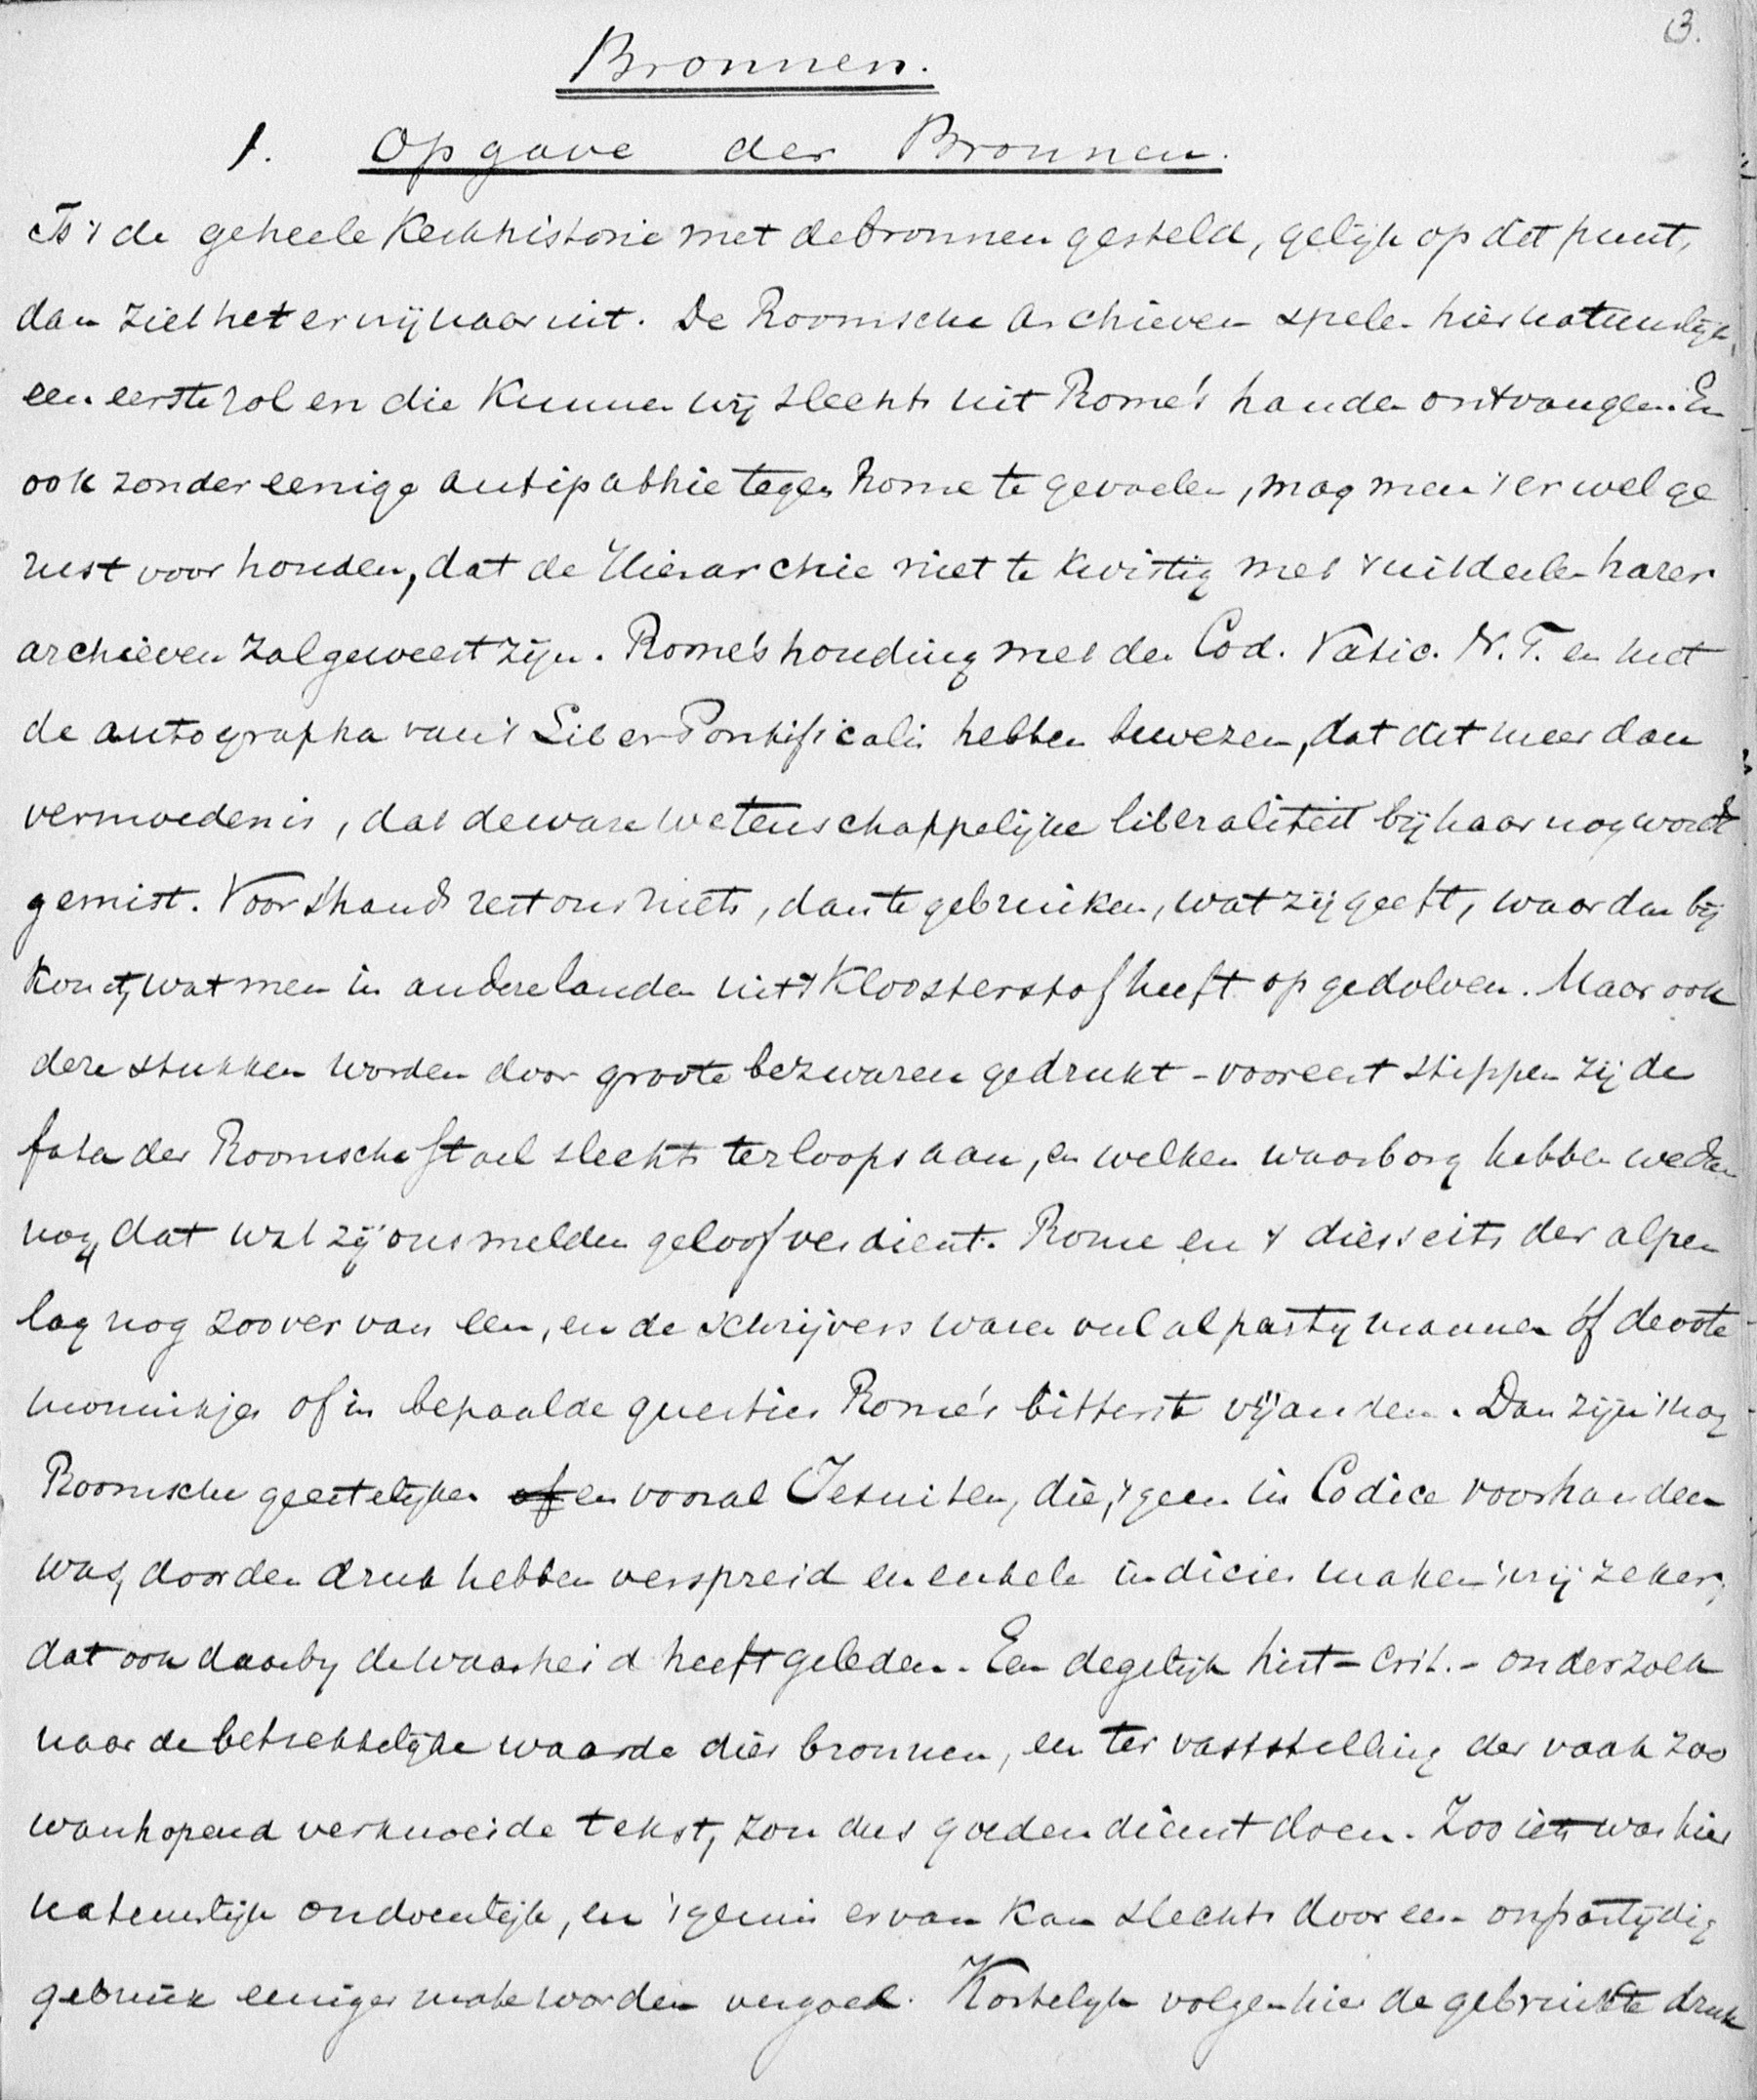 3.
Bronnen.
1. Opgave der Bronnen.
Is 't de geheele Kerkhistorie met de bronnen gesteld, gelijk op dit punt,
dan ziet het er vrij naar uit. De Roomsche Archieven spelen hier natuurlijk,
een eerste rol en die Kunnen wij slechts uit Rome's handen ontvangen. En
ook zonder eenige antipathie tegen Rome te gevoelen, mag men 't er wel ge
rust voor houden, dat de Hierarchie niet te kwistig met 't uitdeelen harer
archieven zal geweest zijn. Rome's houding met den Cod. Vatic. N.T. en met
de autographa van 't Liber Pontificalis hebben bewezen, dat dit meer dan
vermoeden is, dat de ware wetenschappelijke liberaliteit bij haar nog wordt
gemist. Voor 's hands rest ons niets, dan te gebruiken, wat zij geeft, waar dan bij
komt, wat men in andere landen uit 't Kloosterstof heeft opgedolven. Maar ook
deze stukken worden door groote bezwaren gedrukt - vooreerst stippen zij de
fata der Roomsche Stoel slechts terloops aan, en welken waarborg hebben we dan
nog, dat wat zij ons melden geloof verdient. Rome en 't diesseits der alpen
lag nog zoo ver van een, en de schrijvers waren veelal partijmannen òf devote
monnikjes of in bepaalde questies Rome's bitterste vijanden. Dan zijn 't nog
Roomsche geestelijken of en vooral Jesuiten, die, 't geen in Codice voorhanden
was, door den druk hebben verspreid en enkele indicien maken 't vrij zeker,
dat ook daarbij de waarheid heeft geleden. Een degelijk hist-crit.- onderzoek
naar de betrekkelijke waarde dier bronnen, en ter vaststelling der vaak zoo
wanhopend verknoeide tekst, zou dus goeden dienst doen. Zoo iets was hier
natuurlijk ondoenlijk, en 't gemis ervan kan slechts door een onpartijdig
gebruik eenigermate worden vergoed. Kortelijk volgen hier de gebruikte druk